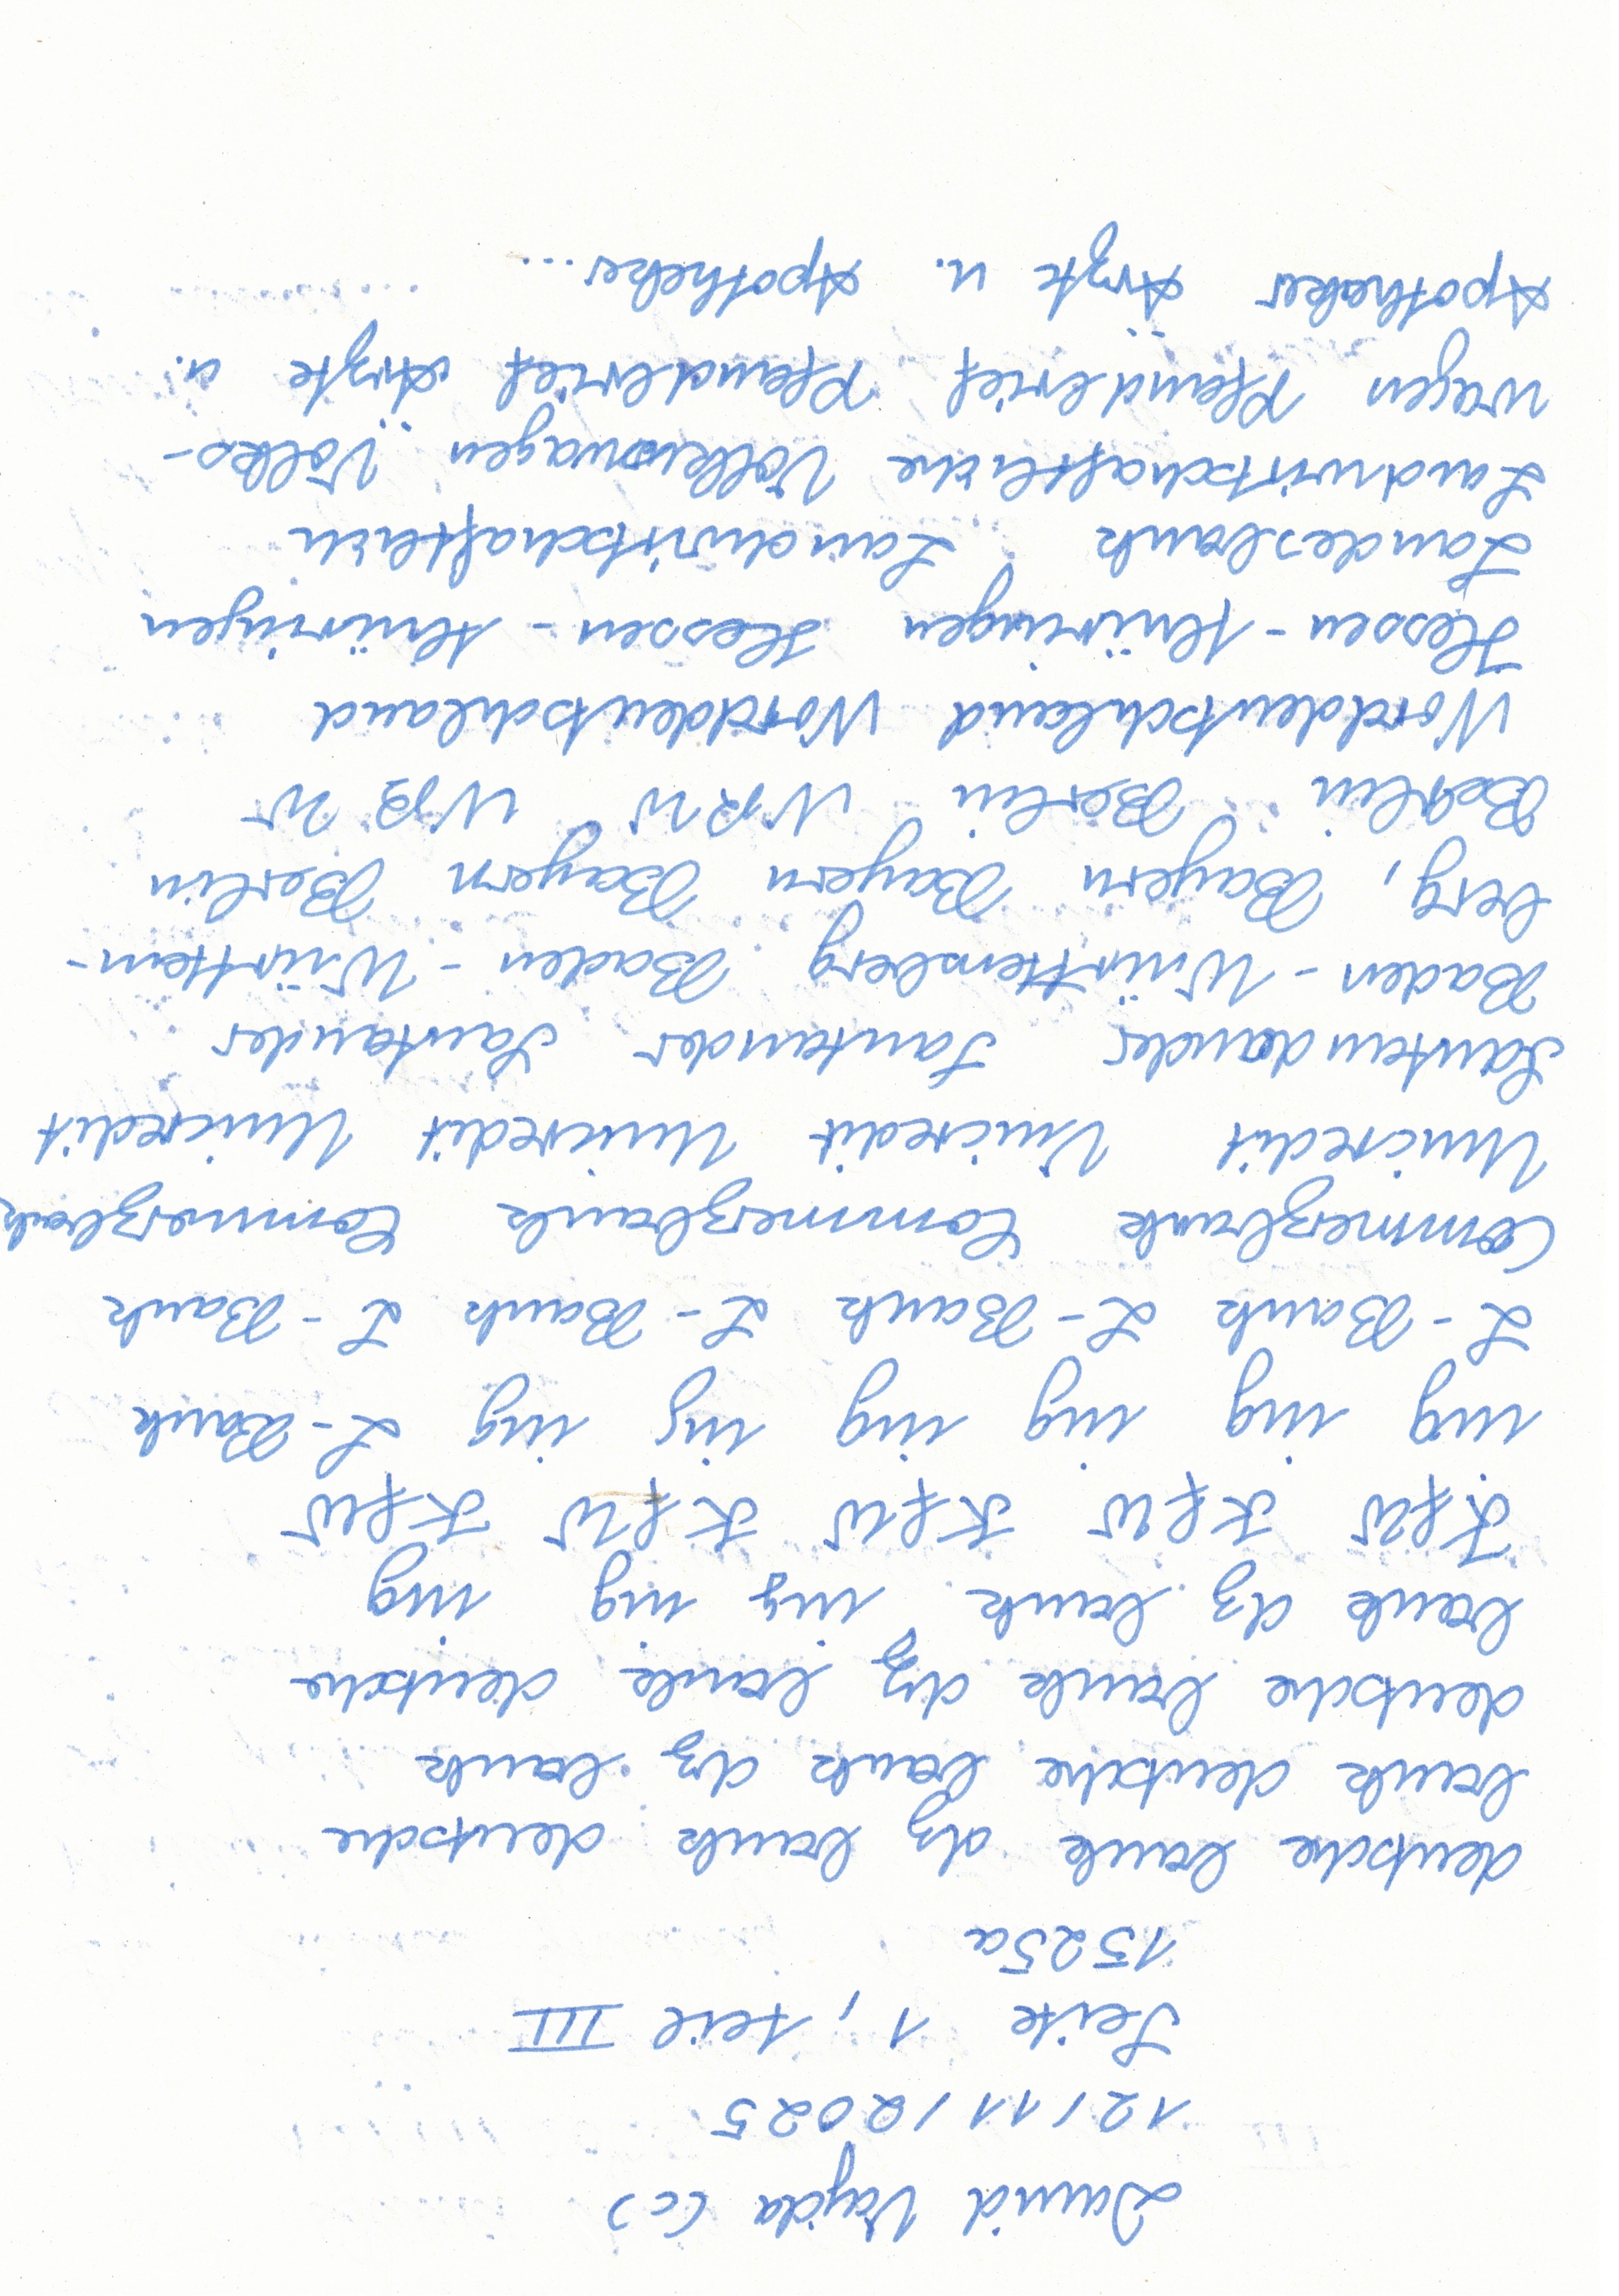 David Vajda (c)
12/11/2025
Seite 1, teil III
1325a
deutsche bank dz bank deutsche
bank deutsche bank dz bank
deutsche bank dz bank deutsche
bank dz bank ing ing ing
KfW KfW KfW KfW KfW
ing ing ing ing ing ing L-Bank
L-Bank L-Bank L-Bank L-Bank
Commerzbank Commerzbank Commerzbank
Unicredit Unicredit Unicredit Unicredit
Santandander Santander Santander
Baden-Württemberg Baden-Württem-
berg, Bayern Bayern Bayern Berlin
Berlin Berlin NRW NRW
Norddeutschland Norddeutschland
Hessen-thüringen Hessen-thüringen
Landesbank Landwirtschaftlich
Landwirtschaftliche Volkswagen Volks-
wagen Pfandbrief Pfandbrief Ärzte u.
Apotheker Ärzte u. Apotheker...